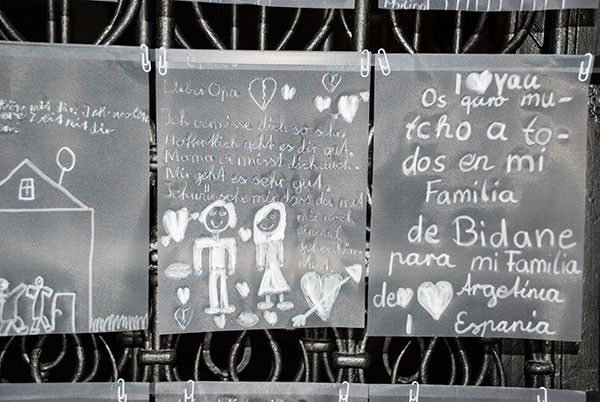 mit dir. Ich
Zeit mit dir
Lieber Opa
Ich vermisse dich so sehr
Hoffentlich geht es dir gut.
Mama vermisst dich auch.
Mir geht es sehr gut.
Ich wünsche mir dass du mit
noch
einmal
I yau
Os qiro mu-
tcho a to-
dos en mi
Familia
de Bidane
para mi Familia
de Argetinia
I Espania